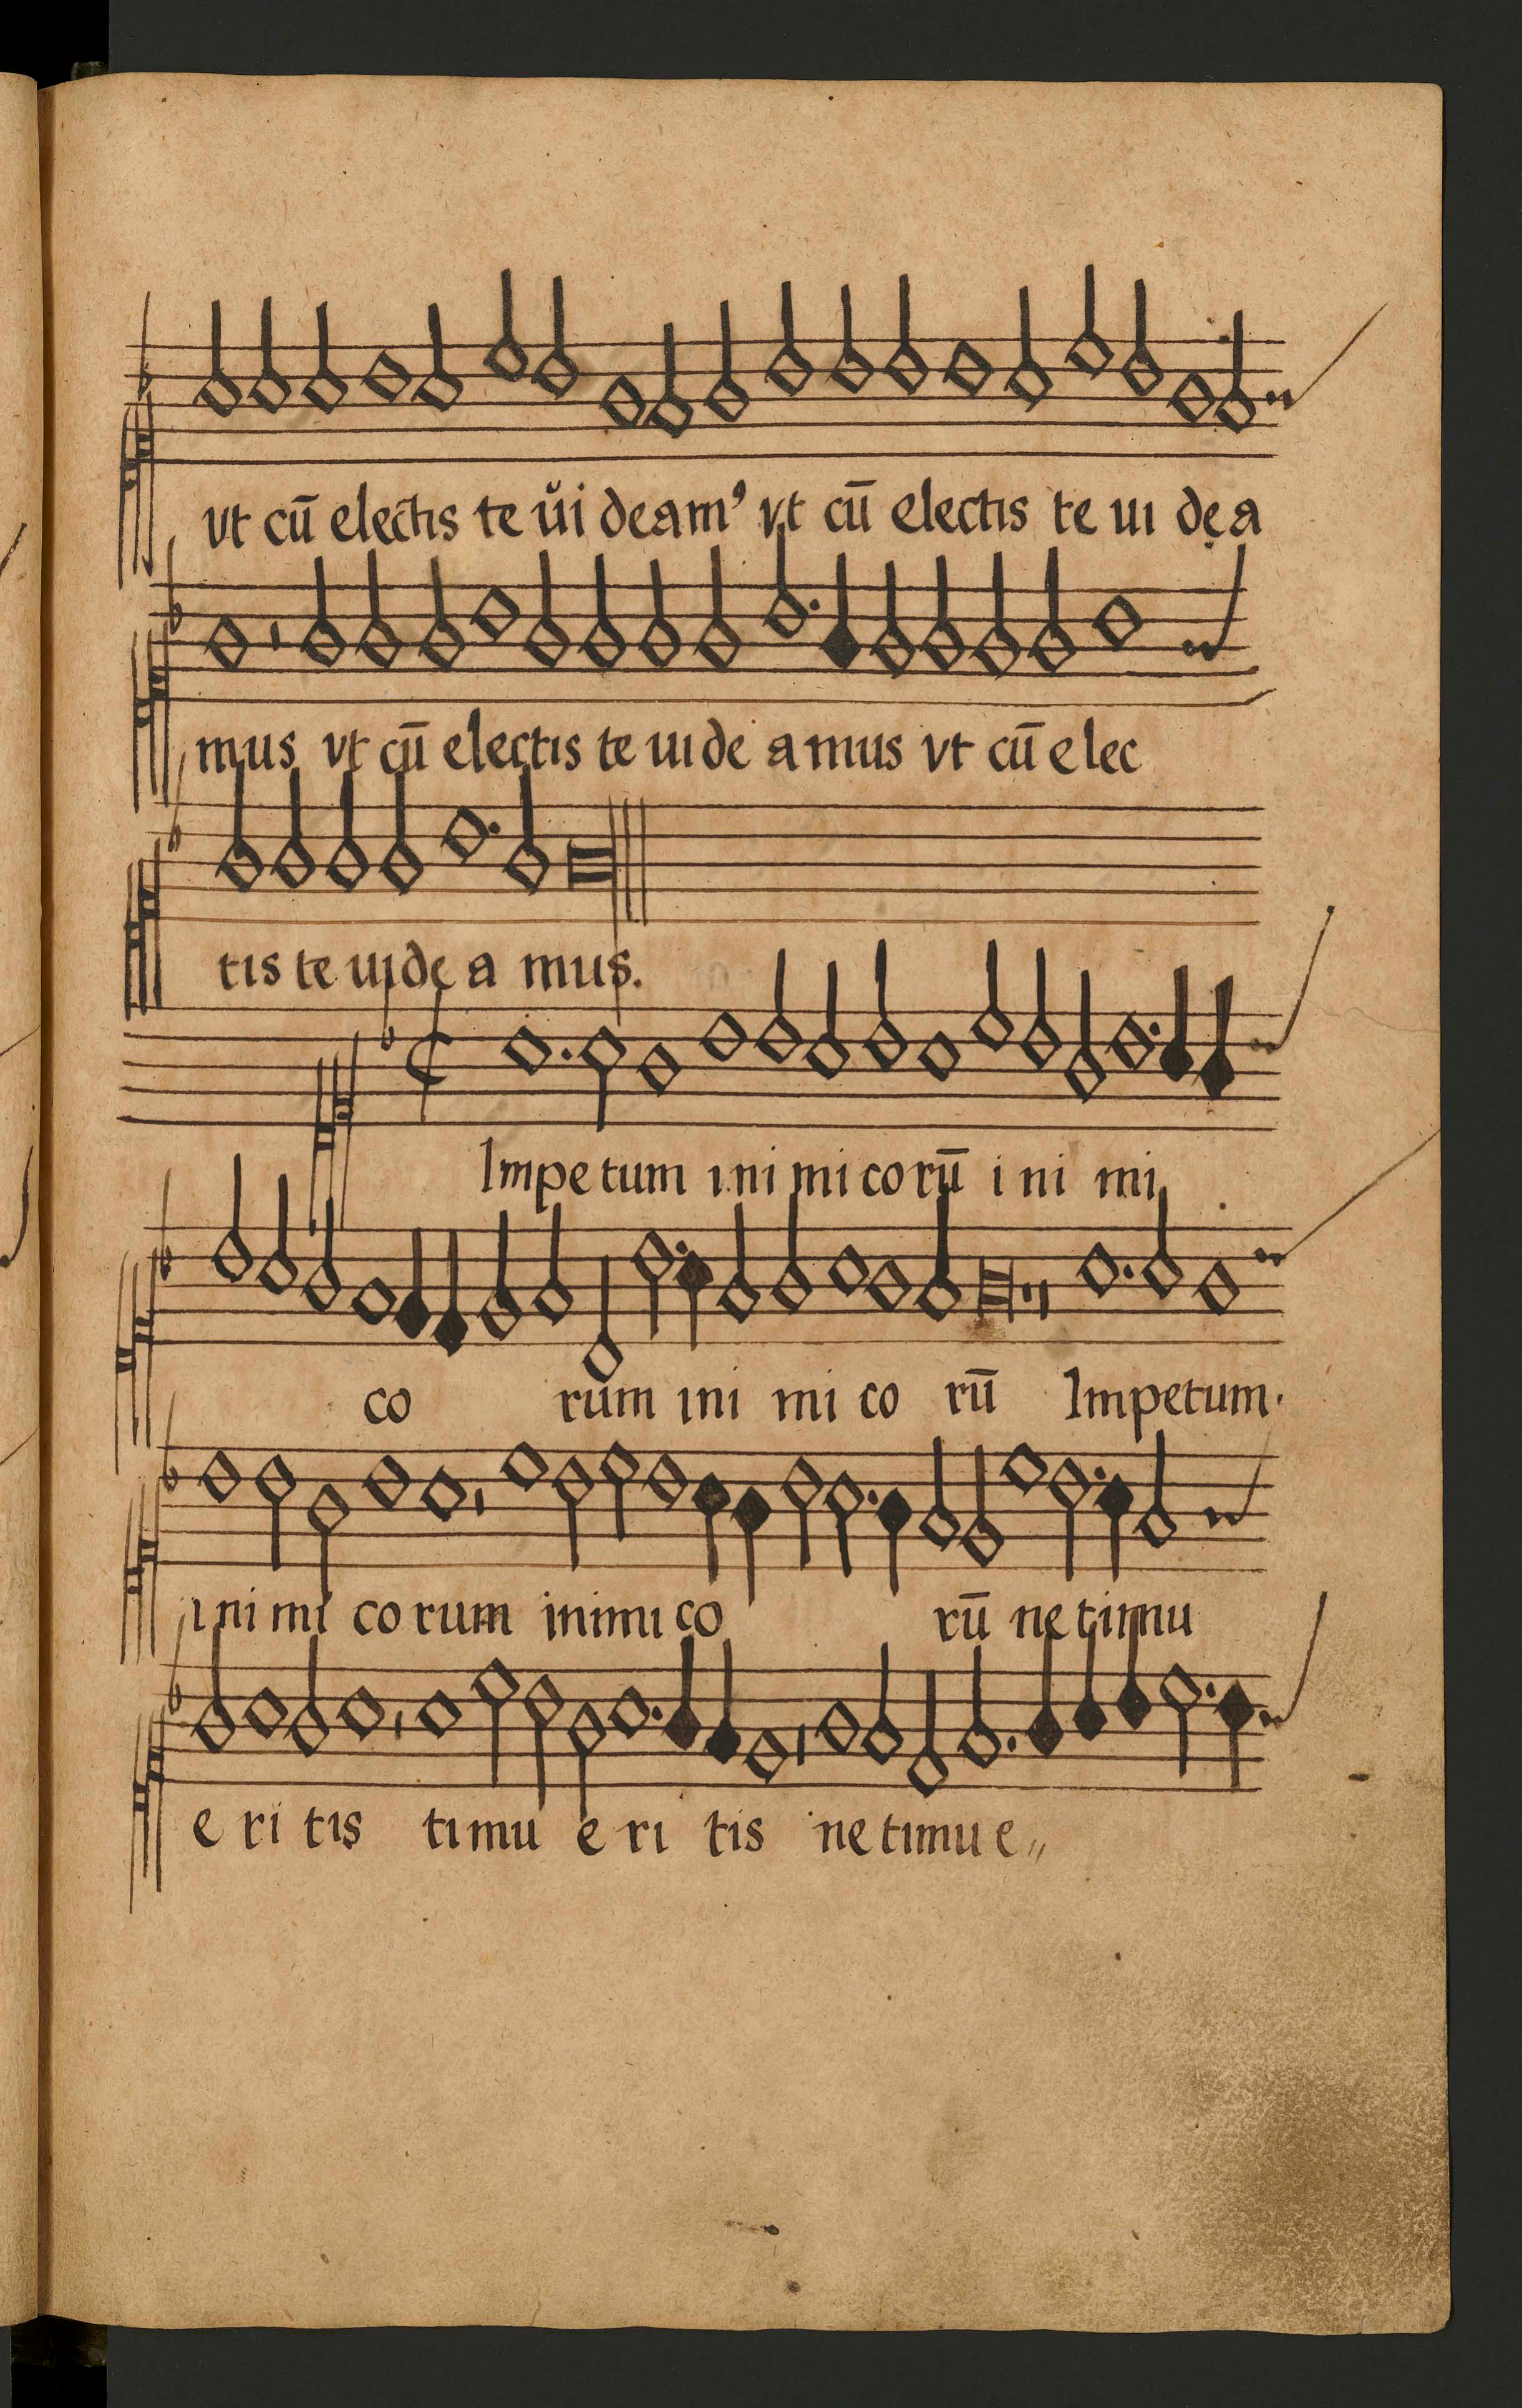 vt cū electis te ui deam⁹ vt cū electis te ui de a
mus vt cū electis te uide a mus vt cū e lec
tis te uide a mus.
Impe tum ini mi co rū i ni mi
co rum ini mi co rū Impetum.
ini mi co rum inimi co rū ne timu
e ri tis timu e ri tis ne timu e〃